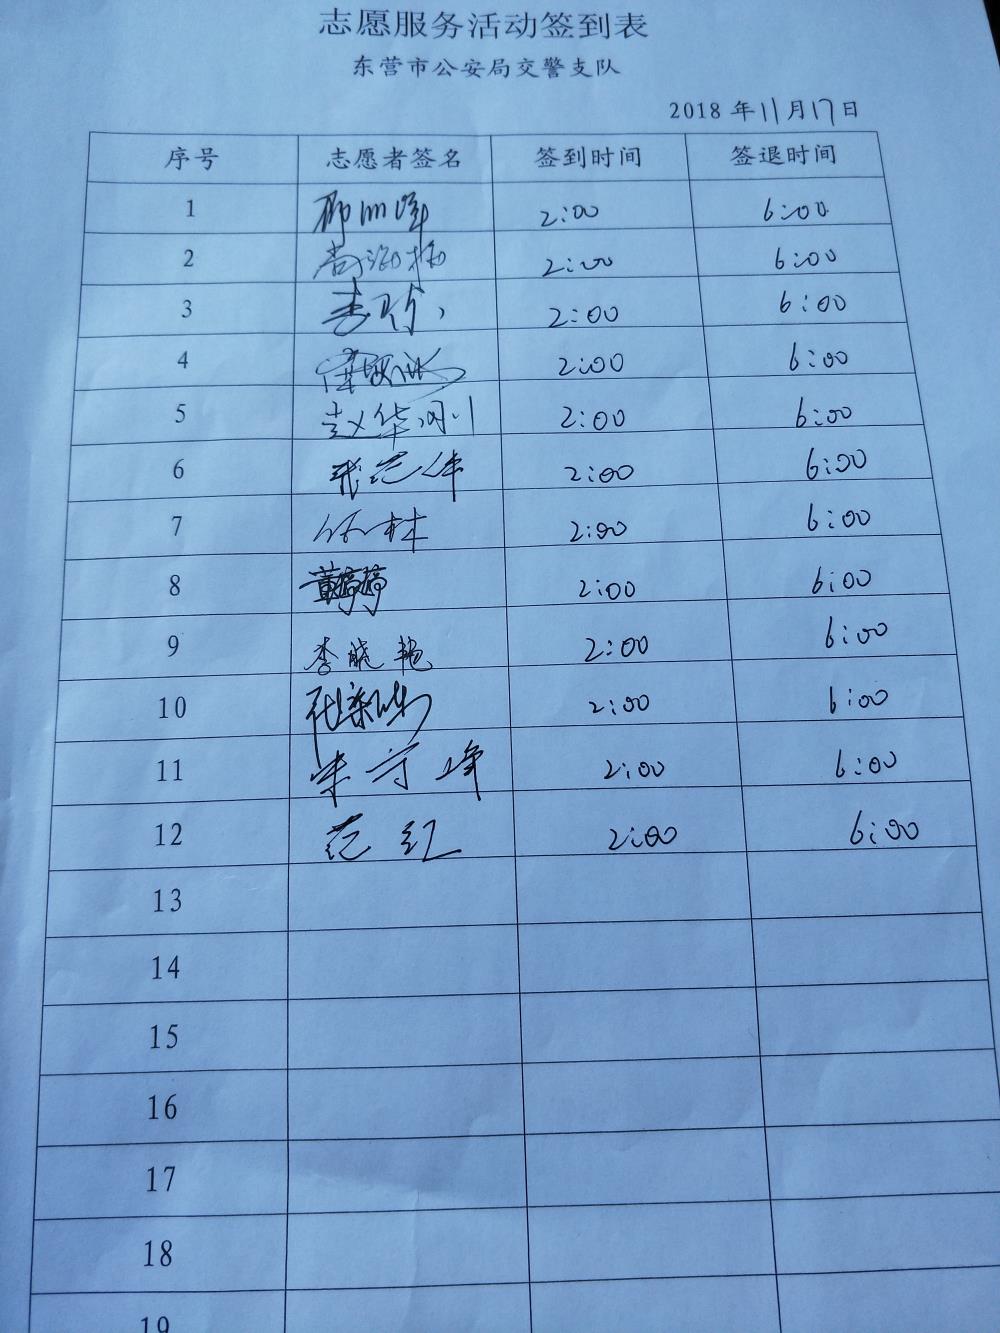 志愿服务活动签到表
东营市公安局交警支队
2018 年 11 月 17 日
序号 志愿者签名 签到时间 签退时间
1 2:00 6:00
2 2:00 6:00
3 2:00 6:00
4 2:00 6:00
5 赵华 2:00 6:00
6 2:00 6:00
7 2:00 6:00
8 董婷婷 2:00 6:00
9 李晓艳 2:00 6:00
10 2:00 6:00
11 朱守峰 2:00 6:00
12 范红 2:00 6:00
13
14
15
16
17
18
19